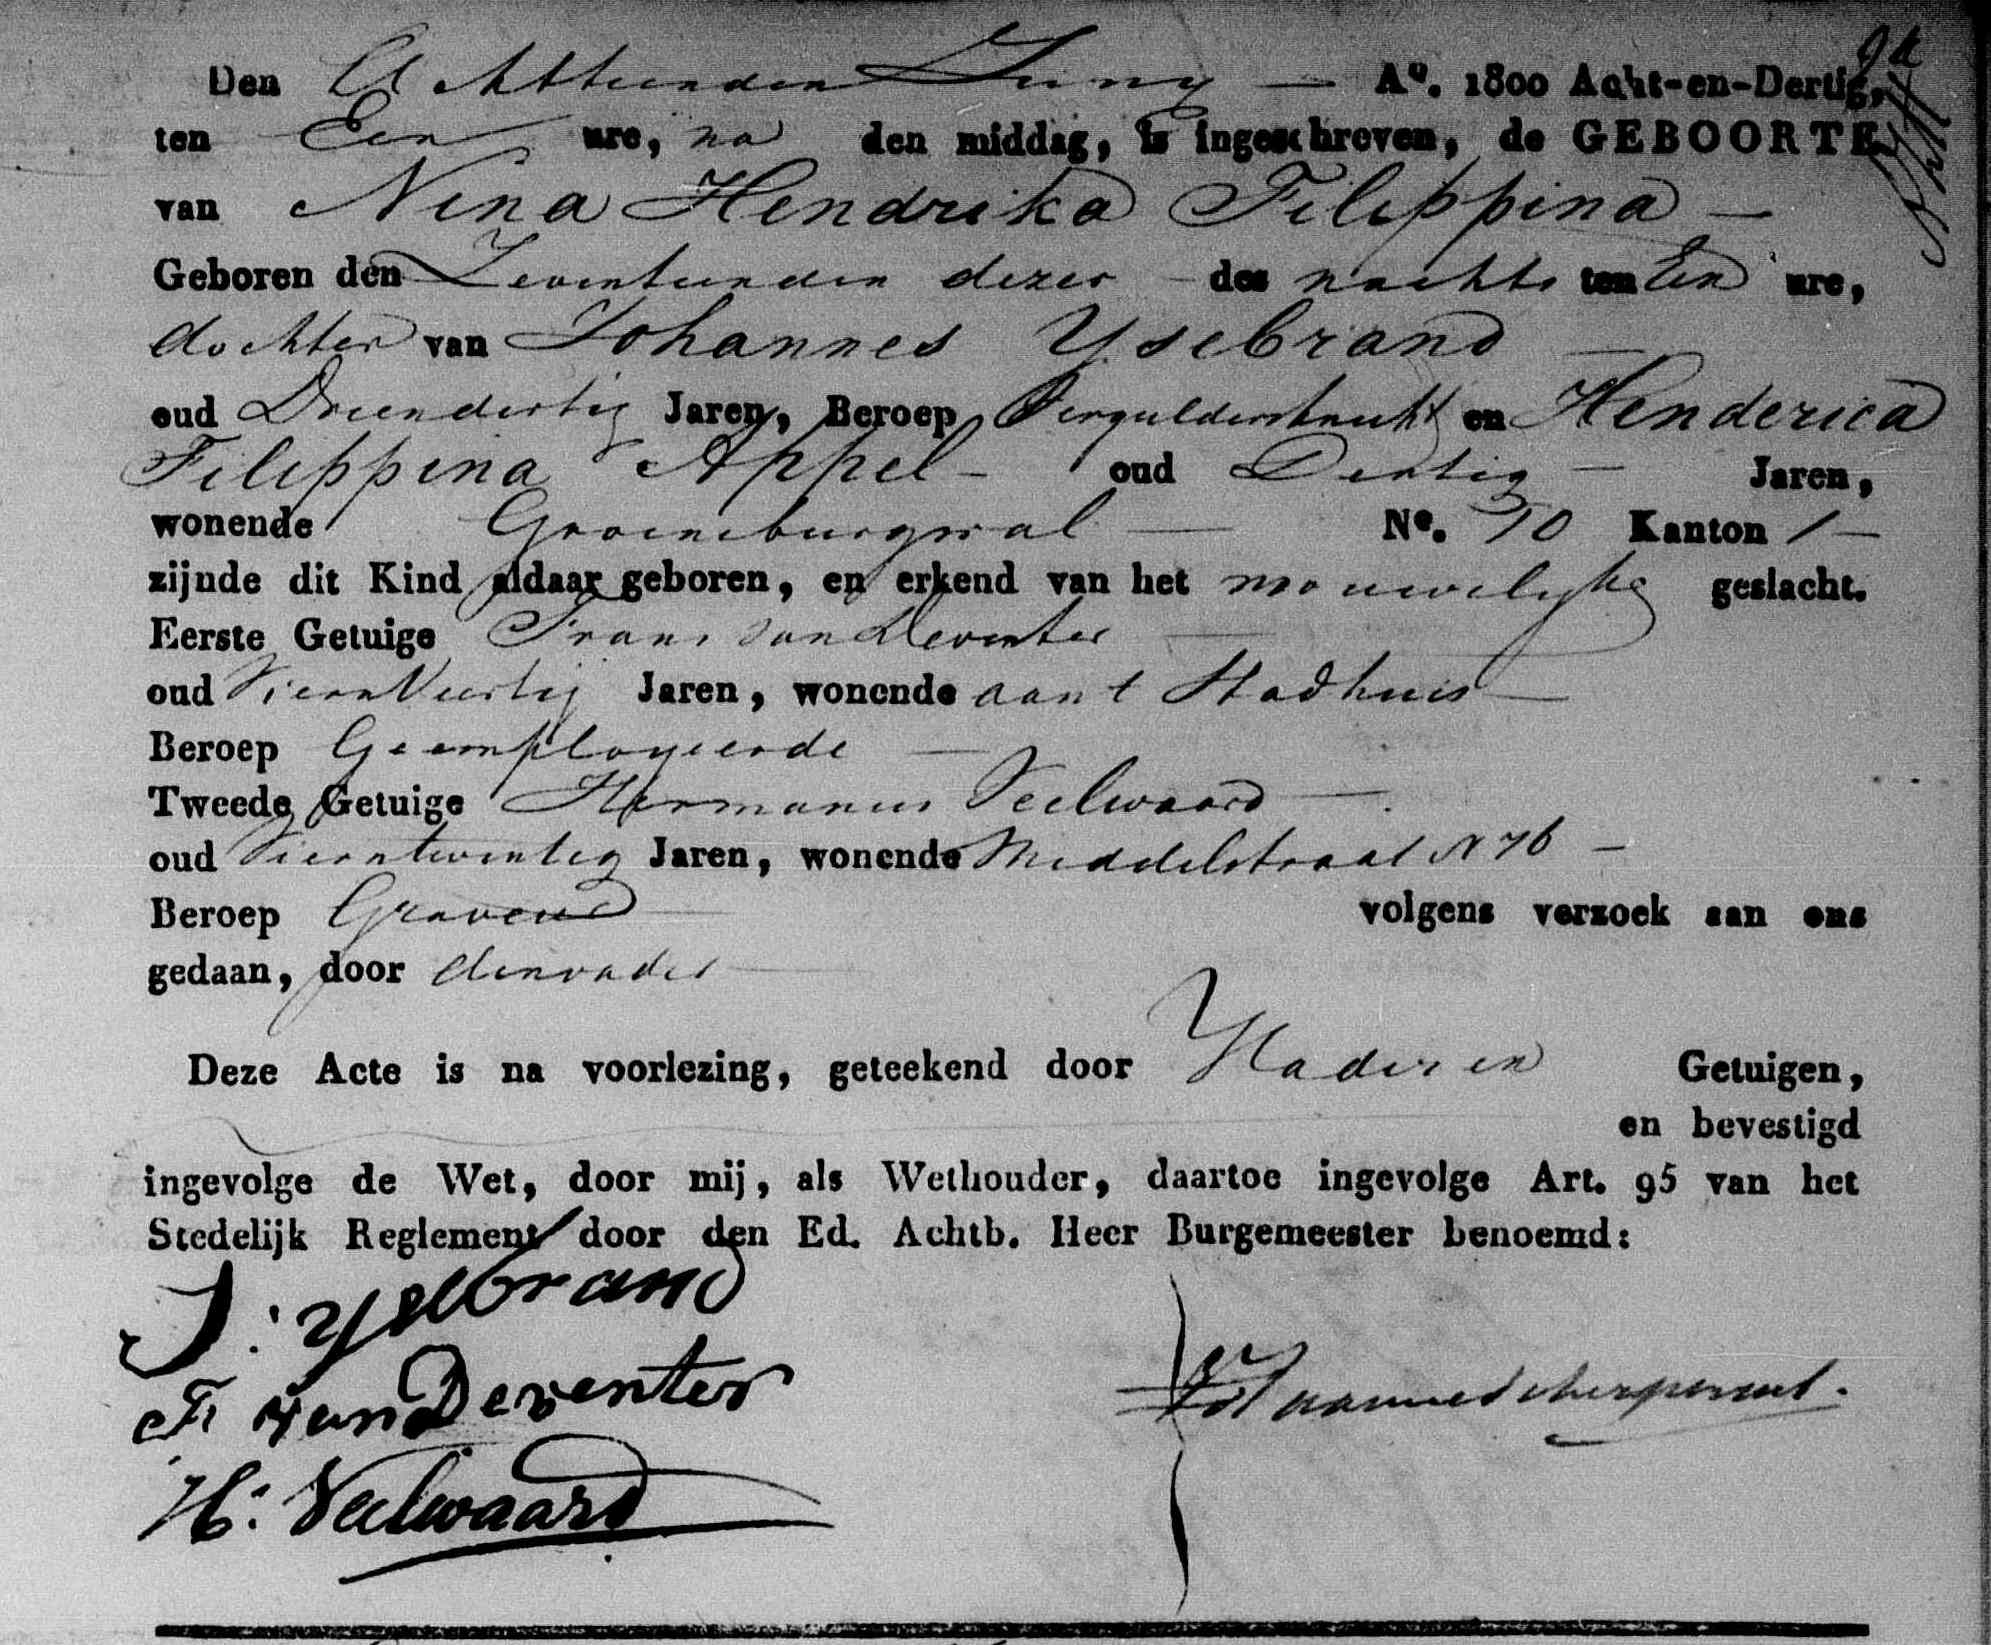 Den Achttienden Juny A°. 1800 Acht-en-Dertig,
ten Een ure, na den middag, is ingeschreven, de GEBOORTE
van Nina Hendrika Filippina
Geboren den Zeventienden dezer des nachts ten Een ure,
dochter van Johannes Ysebrand
oud Drieendertig Jaren, Beroep Verguldersknecht en Henderica
Filippina Appel oud Dertig Jaren,
wonende Groeneburgwal N°. 50 Kanton 1
zijnde dit Kind aldaar geboren, en erkend van het vrouwelyke geslacht.
Eerste Getuige Frans van Deventer
oud Vierenveertig Jaren, wonende aan t Stadhuis
Beroep Geemployeerde
Tweede Getuige Hermanus Veelwaard
oud Vierentwintig Jaren, wonende Middelstraat N 76
Beroep Graveur volgens verzoek aan ons
gedaan, door den vader
Deze Acte is na voorlezing, geteekend door Vader en Getuigen,
en bevestigd
ingevolge de Wet, door mij, als Wethouder, daartoe ingevolge Art. 95 van het
Stedelijk Reglement door den Ed. Achtb. Heer Burgemeester benoemd:
J: Ysebrand
F. van Deventer
H: Veelwaard